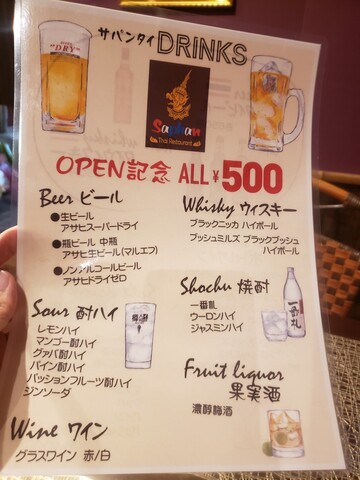 サパンタイ DRINKS
DRY
Saphan
Thai Restaurant
OPEN記念 ALL ¥500
Beer ビール
●生ビール
アサヒスーパードライ
●瓶ビール 中瓶
アサヒ生ビール(マルエフ)
●ノンアルコールビール
アサヒドライゼロ
Sour 酎ハイ
レモンハイ
マンゴー酎ハイ
グァバ酎ハイ
パイン酎ハイ
パッションフルーツ酎ハイ
ジンソーダ
Wine ワイン
グラスワイン 赤/白
Whisky ウィスキー
ブラックニッカ ハイボール
ブッシュミルズ ブラックブッシュ
ハイボール
Shochu 焼酎
一番札
ウーロンハイ
ジャスミンハイ
一番札
Fruit liquor
果実酒
濃醇梅酒